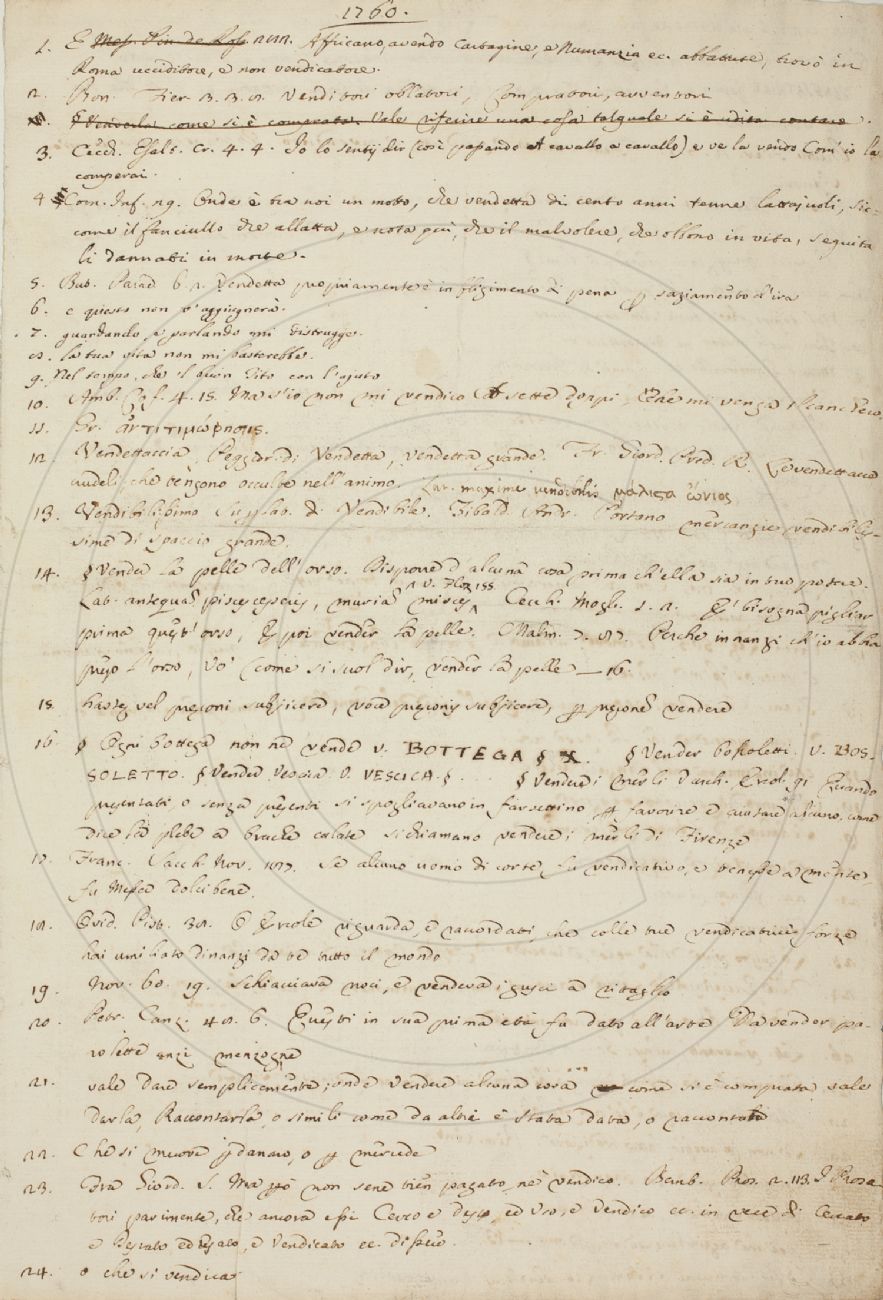 1760.
1. E Mes. Pin. de Ros. num. Affricano, avendo Cartagine, e Numanzia ec. abbattute, trovò in
Roma ucciditore, e non vendicatore.
2. Bon. Fier. 3. 3. 2. Venditori oblatori, Compratori, avventori
come si è comprata. Vale riferire una cosa talquale si è udita contare.
3. Cecch. Esalt. Cr. 4. 4. Io lo sentij dir (così passando a cavallo a cavallo) e ve la vendo com' io la
comperai.
4 Com. Inf. 29. Onde è tra noi un motto, che vendetta di cento anni tenne lattajuoli, sic=
come il fanciullo che allatta, e nota più, che il malvolere, che ebbono in vita, seguita
li dannati in morte.
5. But. Parad. 6. 2. Vendetta propriamente è infliggimento di pena p saziamento d'ira
6. e questo non s'aggiugnerà.
7. guardando, e parlando mi distrugge.
8. la tua vita non mi basterebbe.
9. Nel tempo, che 'l buon Tito con l'ajuto
10. Amb. Cof. 4. 15. Ma s'io non mi vendico, che mi venga il canchero.
11. Gr. ἀντιτιμώρησις.
12. Vendettaccia, Peggior. di Vendetta, vendetta grande. Fr. Giord. Pred. R. Le vendettacce
crudeli, che tengono occulte nell'animo. Lat. maxime vendibilis μάλιστα ὤνιος
13. Vendibilissimo Superlat. di Vendibile. Tibald. Andr. Portano mercanzie vendibilis=
sime di spaccio grande.
14. § Vender la pelle dell'orso. Disporre d'alcuna cosa prima ch'ella sia in tuo potere.
Lat. antequam pisces ceperis, muriam misces V. Flos 155 Cecch. Mogl. 5. 2. E' bisogna pigliar
prima quest'orso, E poi vender la pelle. Malm. 7. 87. Perchè innanzi ch'io abbia
preso l'orso, Vo' (come si suol dir) vender la pelle — 16.
15. hastę vel pręconi subjicere, voce pręconis subjicere, p pręconem vendere
16. § Ogni bottega non ne vende v. BOTTEGA § X. § Vender bossoletti. V. BOS-
SOLETTO. § Vender vescica. V. VESCICA. § ... § Vendere i merli Varch. Ercol. 91 Quando
presentati o senza presenti si spogliavano in farsettino p favorire e ajutare alcuno, come
dice la plebe a brache calate si chiamano vendere i merli di Firenze
17. Franc. Sacch. Nov. 187. Se alcuno uomo di corte fu vendicativo, e tenesse a mente,
fu Messer Dolcibene.
18. Ovid. Pist. 38. O Ercole riguarda, e raccordati, che colle tue vendicatrici forze
hai umiliato dinanzi da te tutto il mondo
19. Nov. 60. 19. Schiacciava noci, e vendeva i gusci a ritaglio
20. Petr. Canz. 48. 6. Questi in sua prima età fu dato all'arte Da vender pa-
rolette anzi menzogne
21. vale dare semplicemente; onde Vendere alcuna cosa come si è comprata vale
darla, Raccontarla, o simili come da altri è stata data, o raccontata
22. Che si muove p danaro, o p mercede
23. Fra Giord. S. Ma non sene tien pagato, nè vendico. Bemb. Pros. 2. 113. I Prosa-
tori parimente, che ancora essi Cerco e Desto, ed Uso, e Vendico ec. in vece di Cercato
e Destato ed Usato, e Vendicato ec. dissero.
24. o che si vendica